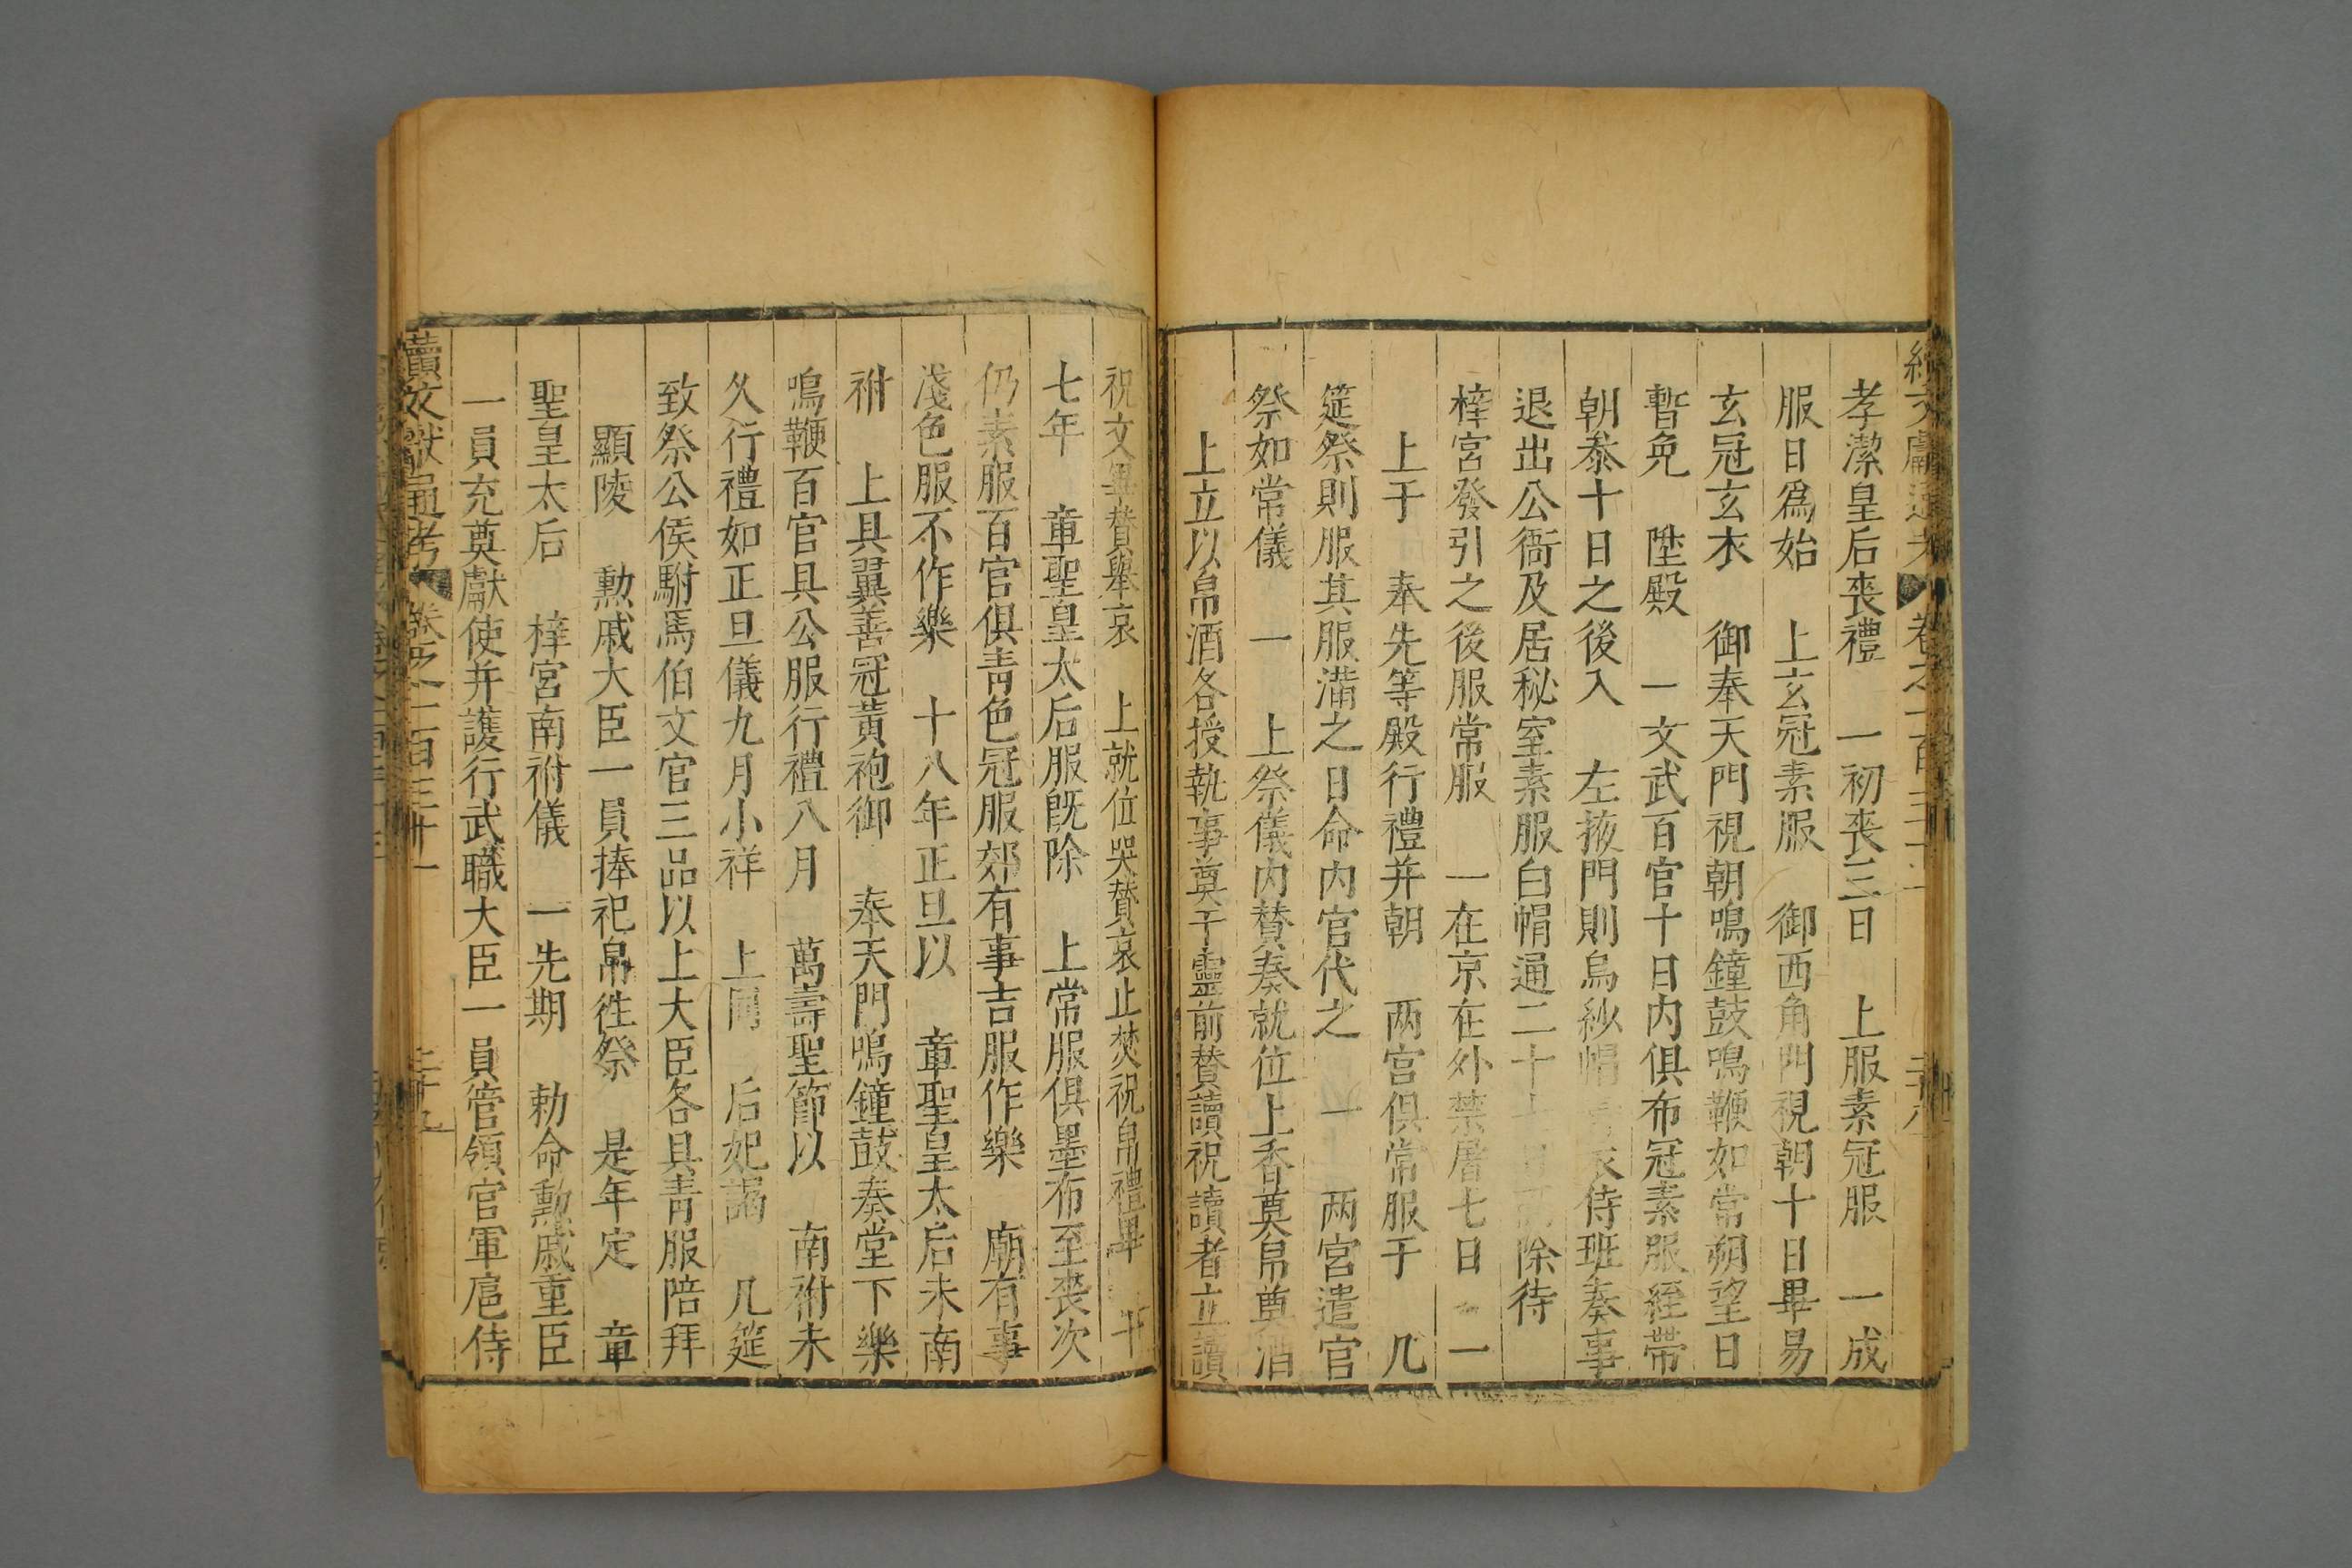 孝潔皇后喪禮 一初喪三日 上服素冠服 一成
服日爲始 上玄冠素服 御西角門視朝十日畢易
玄冠玄衣 御奉天門視朝鳴鐘鼓鳴鞭如常朔望日
暫免 陞殿 一文武百官十日内俱布冠素服絰帶
朝叅十日之後入 左掖門則烏紗帽 衣侍班奏事
退出公衙及居秘室素服白帽通二十 除待
梓宮發引之後服常服 一在京在外禁屠七日 一
上于 奉先等殿行禮并朝 两宮俱常服于 几
筵祭則服其服滿之日命内官代之 一 两宮遣官
祭如常儀 一 上祭儀内賛奏就位上香奠帛奠酒
上立以帛酒各授執事奠于靈前賛讀祝讀者立讀
祝文畢賛舉哀 上就位哭賛哀止焚祝帛禮畢 十
七年 章聖皇太后服旣除 上常服俱墨布至喪次
仍素服百官俱青色冠服郊有事吉服作樂 廟有事
淺色服不作樂 十八年正旦以 章聖皇太后未南
祔 上具翼善冠黃袍御 奉天門鳴鐘鼓奏堂下樂
鳴鞭百官具公服行禮八月 萬壽聖節以 南祔未
久行禮如正旦儀九月小祥 上同 后妃謁 几筵
致祭公侯駙馬伯文官三品以上大臣各具青服陪拜
顯陵 勲戚大臣一員捧祀帛徃祭 是年定 章
聖皇太后 梓宮南祔儀 一先期 勅命勲戚重臣
一員充奠獻使并護行武職大臣一員管領官軍扈侍
續文獻通考 卷之一百三十一 三十九